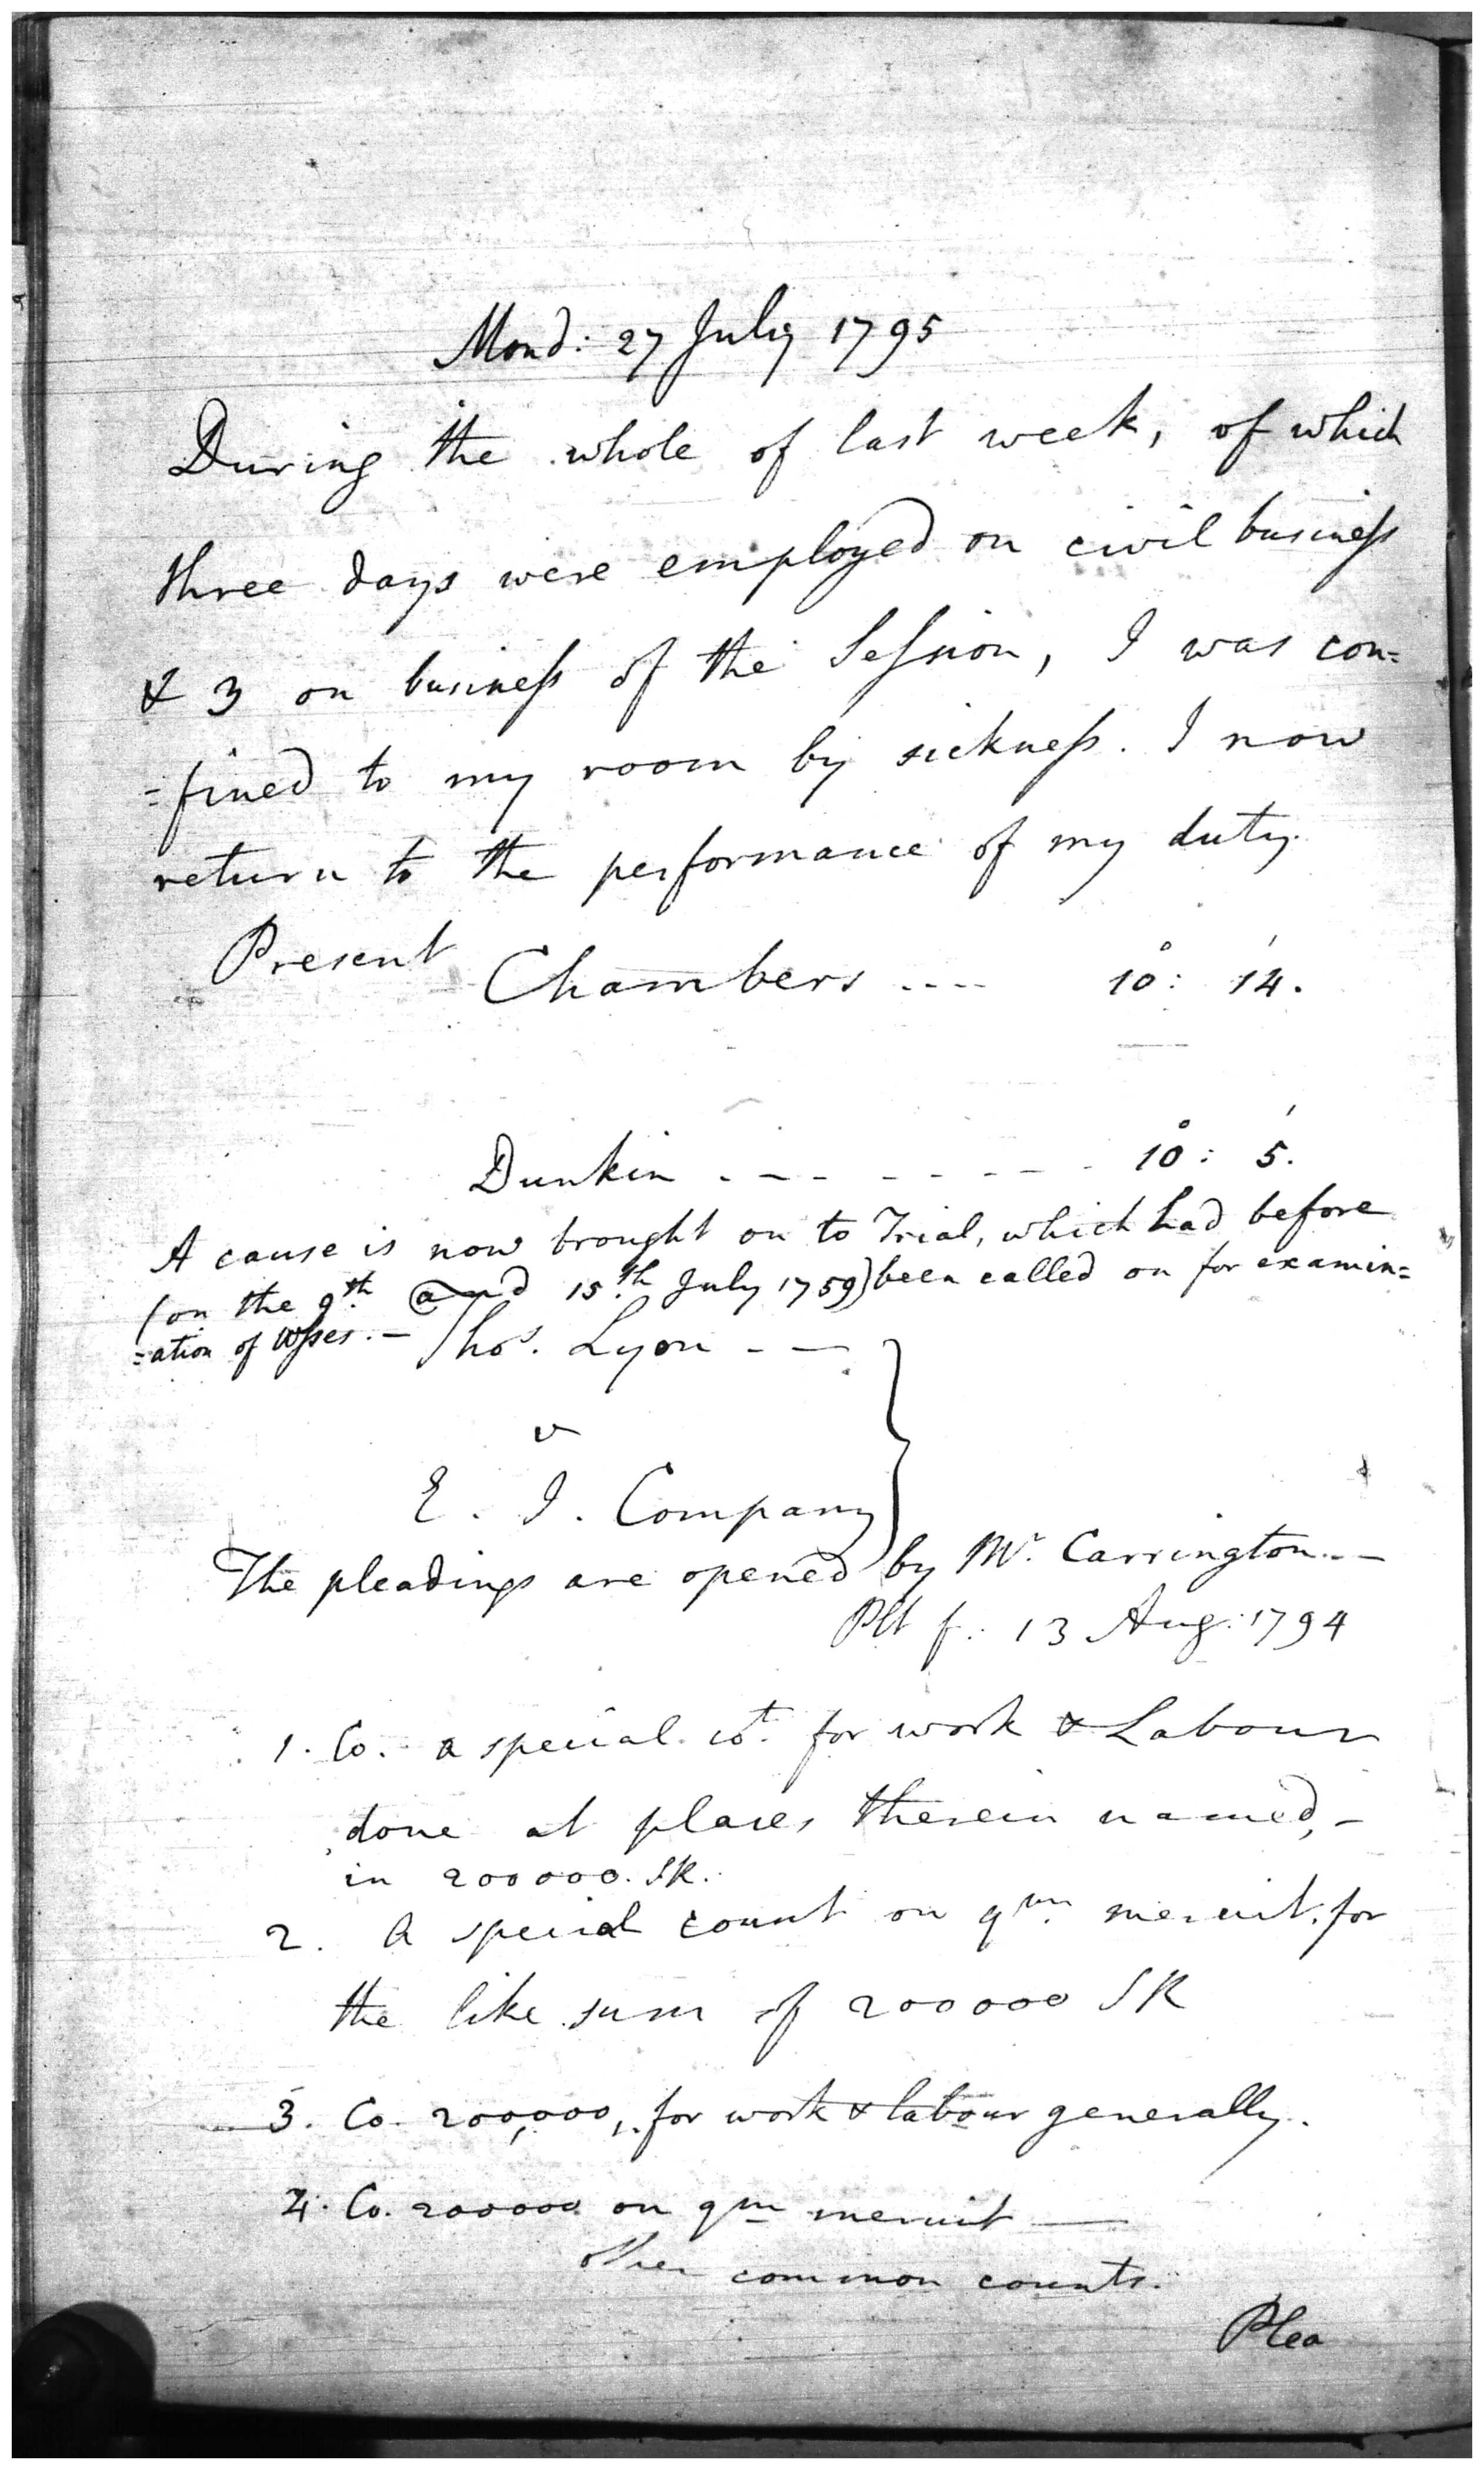 Mond: 27 July 1795
During the whole of last week, of which
three days were employed on civil business
& 3 on business of the Session, I was con=
=fined to my room by sickness. I now
return to the performance of my duty.
Present Chambers .... 10°: 14'.
Dunkin - - - - - - - 10°: 5'.
A cause is now brought on to Trial, which had before
(on the 9th and 15th July 1759) been called on for examin=
=ation of Wsses. —
Thos. Lyon - -
v
E. I. Company
The pleadings are opened by Mr. Carrington. —
Plt f: 13 Aug: 1794
1. Co. a special cot. for work & Labour
done at places therein named, -
in 200000. SR.
2. A special count on qm. meruit. for
the like sum of 200000 SR
3. Co. 200,000, for work & labour generally.
4. Co. 200000 on qm meruit —
other common counts.
Plea